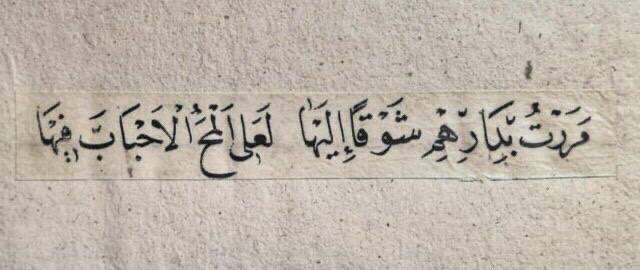 مَرَرْتُ بِدَارِهِمْ شَوْقًا إِلَيْهَا لَعَلِّي أَلْمَحُ الْأَحْبَابَ فِيهَا